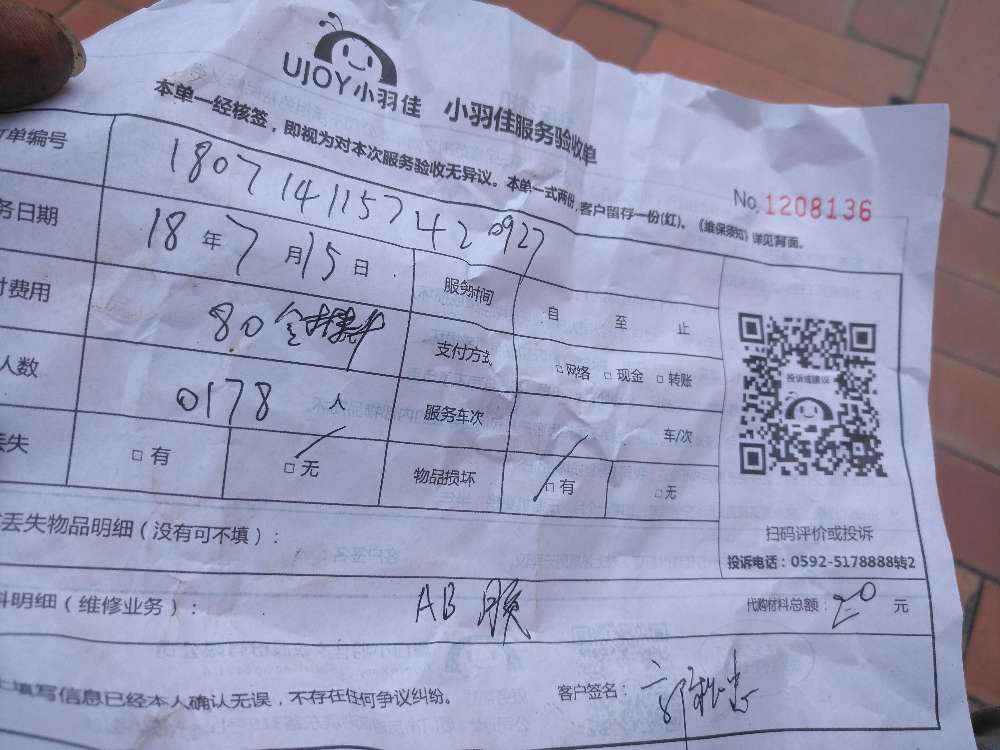 UJOY小羽佳 小羽佳服务验收单
本单一经核签，即视为对本次服务验收无异议。本单一式两份，客户留存一份(红)。《维保须知》详见背面。
No.1208136
单编号 180714115742 0927
务日期 18年7月15日 服务时间 自 至 止
费用 80 支付方式 □网络 □现金 □转账
人数 0178 人 服务车次 车/次
丢失 □有 □无 物品损坏 □有 □无
投诉或建议
扫码评价或投诉
投诉电话：0592-5178888转2
丢失物品明细（没有可不填）：
料明细（维修业务）： AB胶 代购材料总额：20元
填写信息已经本人确认无误，不存在任何争议纠纷。 客户签名：